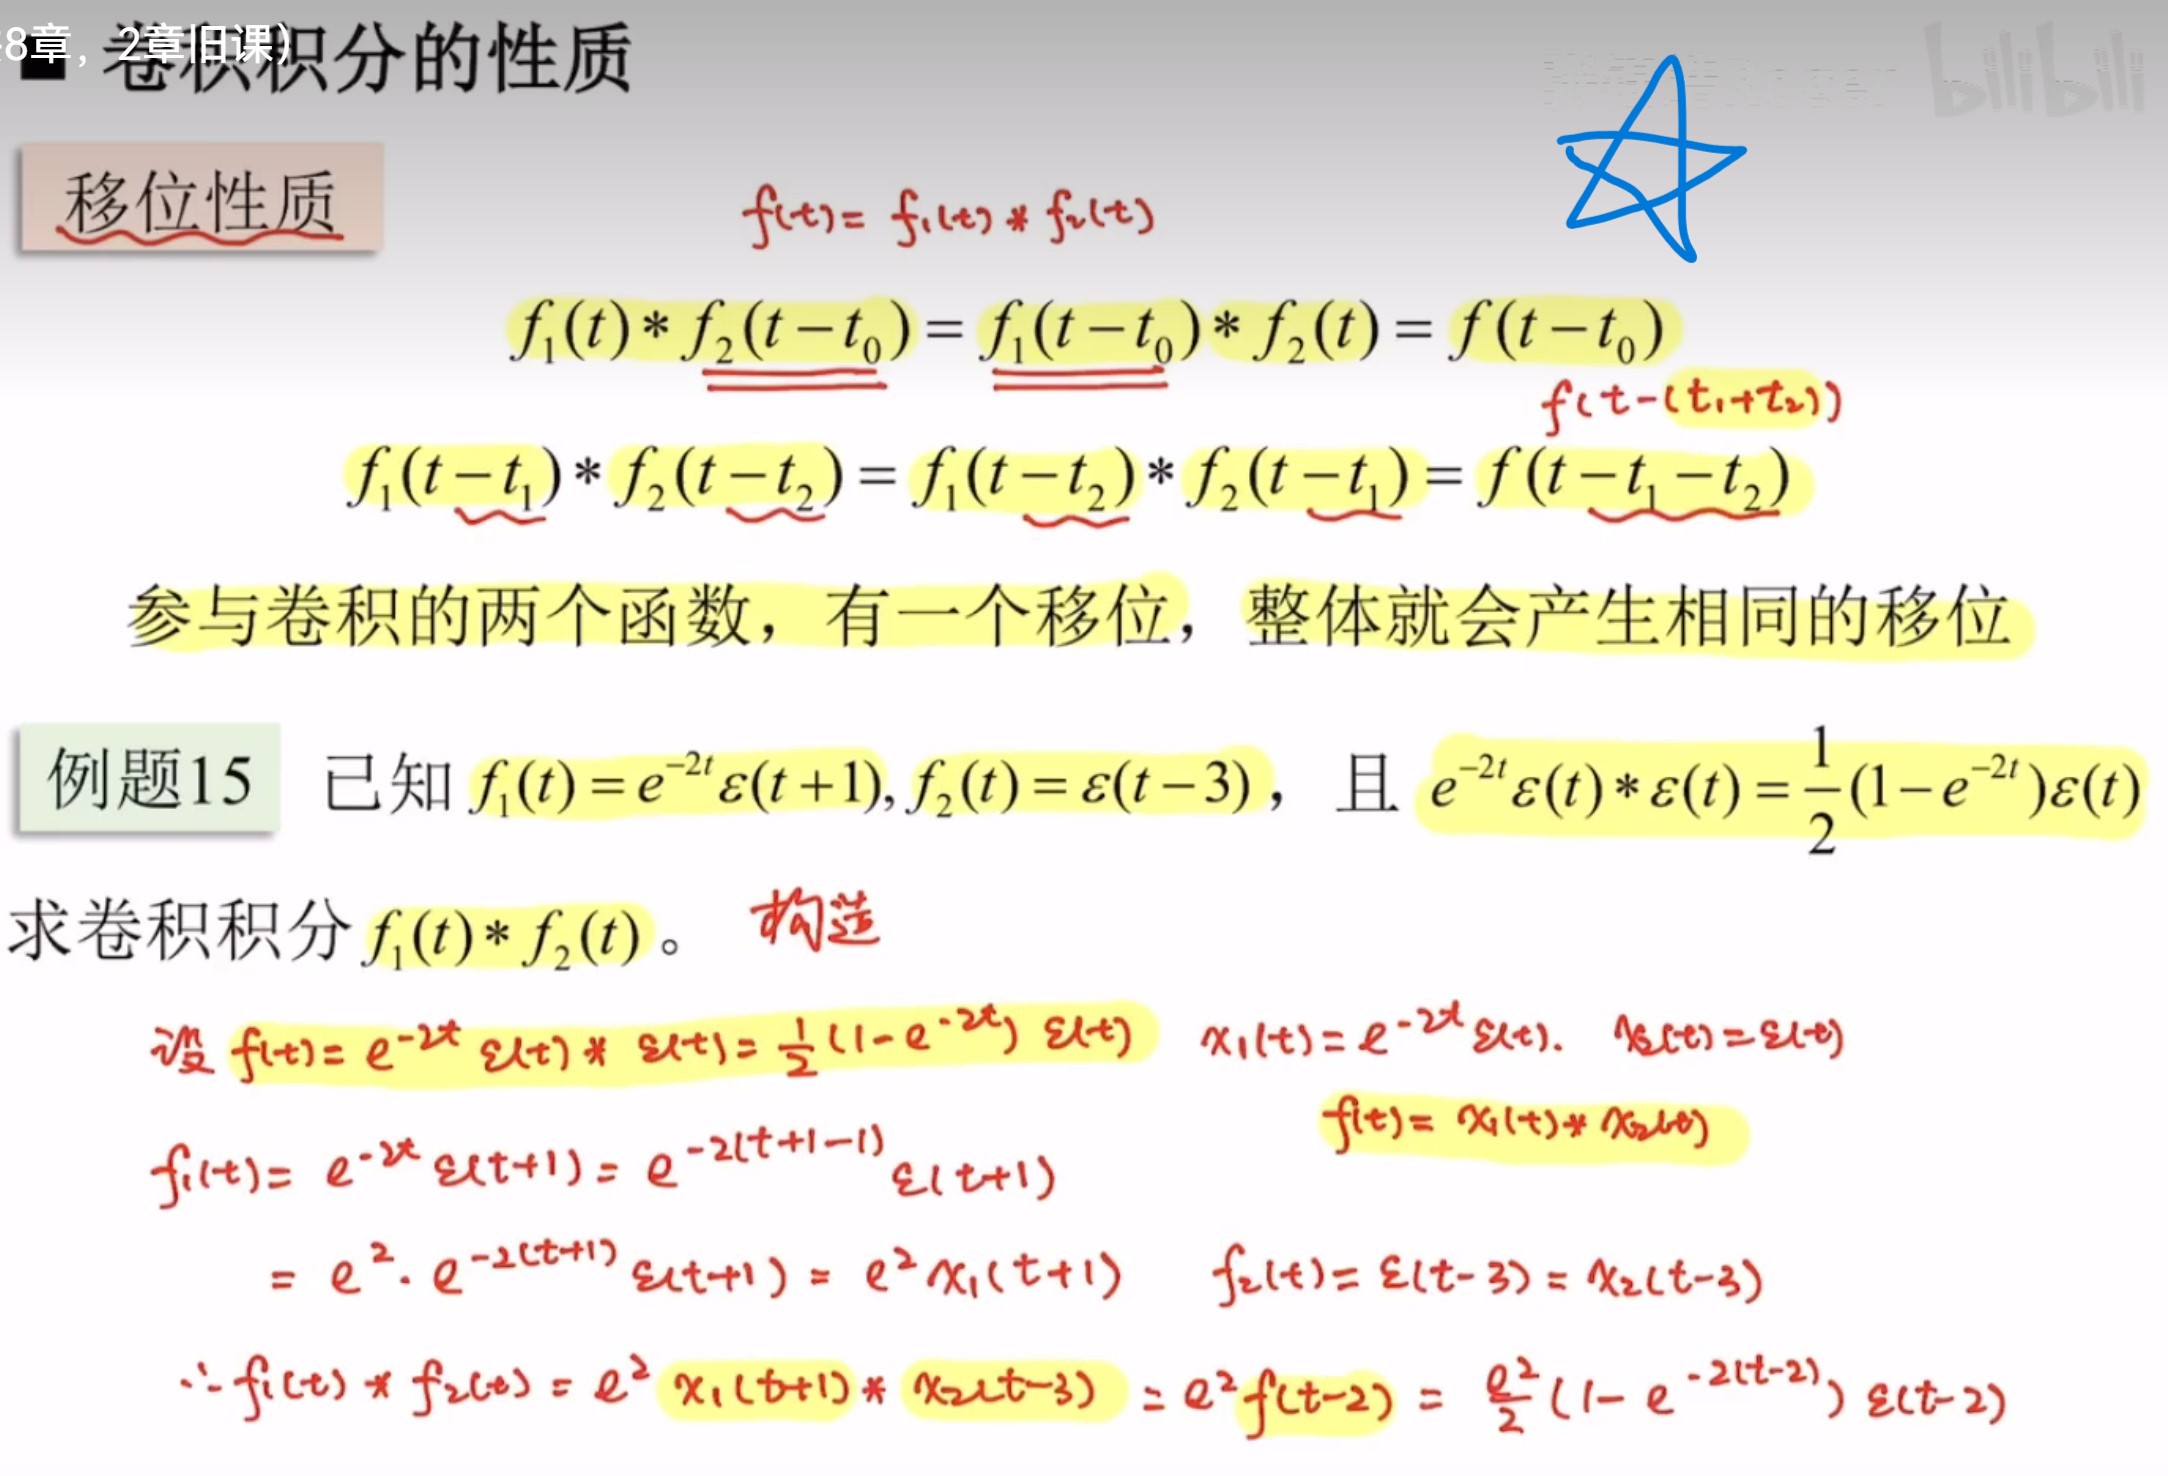 8章，2章旧课）
■ 卷积积分的性质
bilibili
移位性质
f(t)= f₁(t) * f₂(t)
f₁(t)*f₂(t−t₀)=f₁(t−t₀)*f₂(t)=f(t−t₀)
f(t-(t₁+t₂))
f₁(t−t₁)*f₂(t−t₂)=f₁(t−t₂)*f₂(t−t₁)=f(t−t₁−t₂)
参与卷积的两个函数，有一个移位，整体就会产生相同的移位
例题15 已知 f₁(t)=e⁻²ᵗε(t+1), f₂(t)=ε(t−3)，且 e⁻²ᵗε(t)*ε(t)=1/2(1−e⁻²ᵗ)ε(t)
求卷积积分 f₁(t)*f₂(t)。 构造
设 f(t)= e⁻²ᵗ ε(t) * ε(t)= 1/2 (1-e⁻²ᵗ) ε(t) x₁(t)=e⁻²ᵗ ε(t). x₂(t)=ε(t)
f(t)= x₁(t)* x₂(t)
f₁(t)= e⁻²ᵗ ε(t+1)= e^(-2(t+1-1)) ε(t+1)
= e²· e^(-2(t+1)) ε(t+1) = e² x₁(t+1) f₂(t)= ε(t-3)= x₂(t-3)
∴ f₁(t) * f₂(t) = e² x₁(t+1) * x₂(t-3) = e² f(t-2) = e²/2 (1- e^(-2(t-2))) ε(t-2)